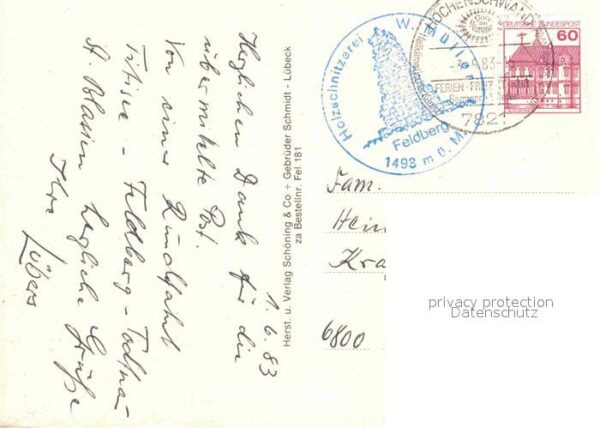 1.6.83
Herzlichen Dank für die
übermittelte Post.
Von einer Rundfahrt
Titisee - Feldberg - Todtnau-
St. Blasien herzliche Grüße
Ihre Lübers
Herst. u. Verlag Schöning & Co + Gebrüder Schmidt - Lübeck
za Bestellnr. Fel 181
Holzschnitzerei W. Müller
Feldberg
1493 m ü. M.
HÖCHENSCHWAND
83
FERIEN
782
DEUTSCHE BUNDESPOST
60
Fam.
Hein
Kra
6800
privacy protection
Datenschutz